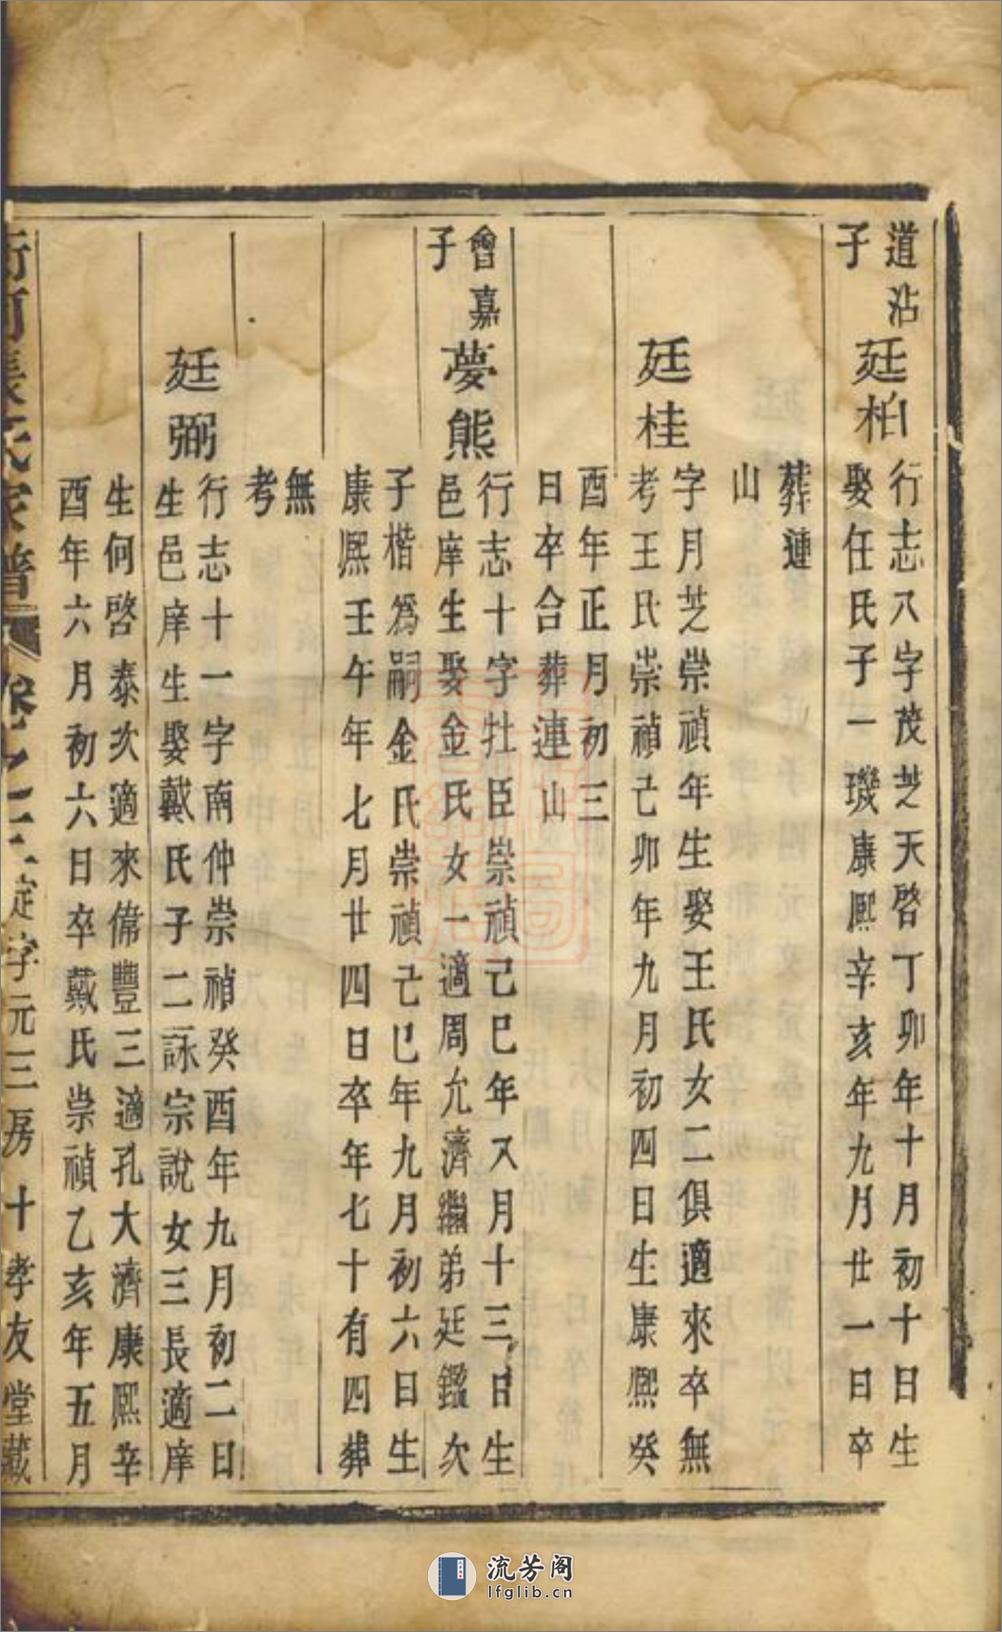 道沾
子
廷柏
行志八字茂芝天啓丁卯年十月初十日生
娶任氏子一璣康熙辛亥年九月廿一日卒
葬連
山
廷桂
字月芝崇禎年生娶王氏女二俱適來卒無
考王氏崇禎己卯年九月初四日生康熙癸
酉年正月初三
日卒合葬連山
會嘉
子
夢熊
行志十字牡臣崇禎己巳年又月十三日生
邑庠生娶金氏女一適周允濟繼弟廷鑑次
子楷為嗣金氏崇禎己巳年九月初六日生
康熙壬午年七月廿四日卒年七十有四葬
無
考
廷弼
行志十一字南仲崇禎癸酉年九月初二日
生邑庠生娶戴氏子二詠宗說女三長適庠
生何啓泰次適來偹豐三適孔大濟康熙辛
酉年六月初六日卒戴氏崇禎乙亥年五月
張氏家譜 卷之 定字元三房 十 孝友堂藏
流芳阁
lfglib.cn